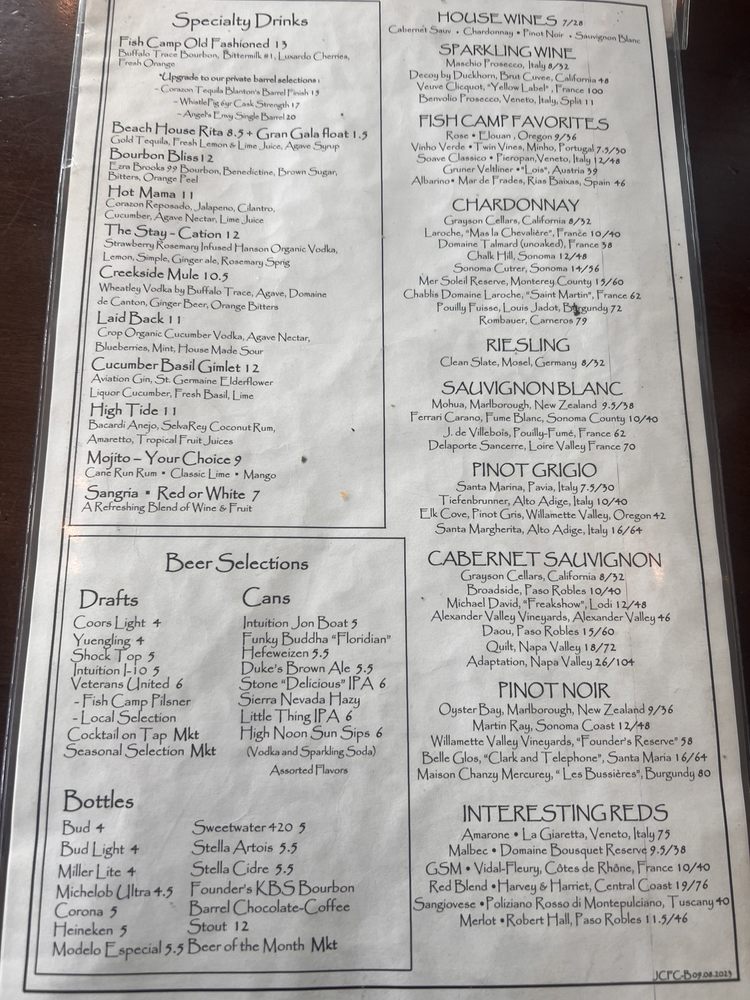 Specialty Drinks
Fish Camp Old Fashioned 13
Buffalo Trace Bourbon, Bittermilk #1, Luxardo Cherries,
Fresh Orange
*Upgrade to our private barrel selections:
- Corazon Tequila Blanton's Barrel Finish 15
- WhistlePig 6yr Cask Strength 17
- Angel's Envy Single Barrel 20
Beach House Rita 8.5 + Gran Gala float 1.5
Gold Tequila, Fresh Lemon & Lime Juice, Agave Syrup
Bourbon Bliss 12
Ezra Brooks 99 Bourbon, Benedictine, Brown Sugar,
Bitters, Orange Peel
Hot Mama 11
Corazon Reposado, Jalapeno, Cilantro,
Cucumber, Agave Nectar, Lime Juice
The Stay - Cation 12
Strawberry Rosemary Infused Hanson Organic Vodka,
Lemon, Simple, Ginger ale, Rosemary Sprig
Creekside Mule 10.5
Wheatley Vodka by Buffalo Trace, Agave, Domaine
de Canton, Ginger Beer, Orange Bitters
Laid Back 11
Crop Organic Cucumber Vodka, Agave Nectar,
Blueberries, Mint, House Made Sour
Cucumber Basil Gimlet 12
Aviation Gin, St. Germaine Elderflower
Liquor Cucumber, Fresh Basil, Lime
High Tide 11
Bacardi Anejo, SelvaRey Coconut Rum,
Amaretto, Tropical Fruit Juices
Mojito – Your Choice 9
Cane Run Rum • Classic Lime • Mango
Sangria • Red or White 7
A Refreshing Blend of Wine & Fruit
Beer Selections
Drafts
Coors Light 4
Yuengling 4
Shock Top 5
Intuition I-10 5
Veterans United 6
- Fish Camp Pilsner
- Local Selection
Cocktail on Tap Mkt
Seasonal Selection Mkt
Cans
Intuition Jon Boat 5
Funky Buddha "Floridian"
Hefeweizen 5.5
Duke's Brown Ale 5.5
Stone "Delicious" IPA 6
Sierra Nevada Hazy
Little Thing IPA 6
High Noon Sun Sips 6
(Vodka and Sparkling Soda)
Assorted Flavors
Bottles
Bud 4
Bud Light 4
Miller Lite 4
Michelob Ultra 4.5
Corona 5
Heineken 5
Modelo Especial 5.5
Sweetwater 420 5
Stella Artois 5.5
Stella Cidre 5.5
Founder's KBS Bourbon
Barrel Chocolate-Coffee
Stout 12
Beer of the Month Mkt
HOUSE WINES 7/28
Cabernet Sauv • Chardonnay • Pinot Noir • Sauvignon Blanc
SPARKLING WINE
Maschio Prosecco, Italy 8/32
Decoy by Duckhorn, Brut Cuvee, California 48
Veuve Clicquot, "Yellow Label", France 100
Benvolio Prosecco, Veneto, Italy, Split 11
FISH CAMP FAVORITES
Rose • Elouan, Oregon 9/36
Vinho Verde • Twin Vines, Minho, Portugal 7.5/30
Soave Classico • Pieropan, Veneto, Italy 12/48
Gruner Veltliner • "Lois", Austria 39
Albarino • Mar de Frades, Rias Baixas, Spain 46
CHARDONNAY
Grayson Cellars, California 8/32
Laroche, "Mas la Chevalière", France 10/40
Domaine Talmard (unoaked), France 38
Chalk Hill, Sonoma 12/48
Sonoma Cutrer, Sonoma 14/56
Mer Soleil Reserve, Monterey County 15/60
Chablis Domaine Laroche, "Saint Martin", France 62
Pouilly Fuisse, Louis Jadot, Burgundy 72
Rombauer, Carneros 79
RIESLING
Clean Slate, Mosel, Germany 8/32
SAUVIGNON BLANC
Mohua, Marlborough, New Zealand 9.5/38
Ferrari Carano, Fume Blanc, Sonoma County 10/40
J. de Villebois, Pouilly-Fumé, France 62
Delaporte Sancerre, Loire Valley France 70
PINOT GRIGIO
Santa Marina, Pavia, Italy 7.5/30
Tiefenbrunner, Alto Adige, Italy 10/40
Elk Cove, Pinot Gris, Willamette Valley, Oregon 42
Santa Margherita, Alto Adige, Italy 16/64
CABERNET SAUVIGNON
Grayson Cellars, California 8/32
Broadside, Paso Robles 10/40
Michael David, "Freakshow", Lodi 12/48
Alexander Valley Vineyards, Alexander Valley 46
Daou, Paso Robles 15/60
Quilt, Napa Valley 18/72
Adaptation, Napa Valley 26/104
PINOT NOIR
Oyster Bay, Marlborough, New Zealand 9/36
Martin Ray, Sonoma Coast 12/48
Willamette Valley Vineyards, "Founder's Reserve" 58
Belle Glos, "Clark and Telephone", Santa Maria 16/64
Maison Chanzy Mercurey, " Les Bussières", Burgundy 80
INTERESTING REDS
Amarone • La Giaretta, Veneto, Italy 75
Malbec • Domaine Bousquet Reserve 9.5/38
GSM • Vidal-Fleury, Côtes de Rhône, France 10/40
Red Blend • Harvey & Harriet, Central Coast 19/76
Sangiovese • Poliziano Rosso di Montepulciano, Tuscany 40
Merlot • Robert Hall, Paso Robles 11.5/46
JCFC-B 09.08.2023